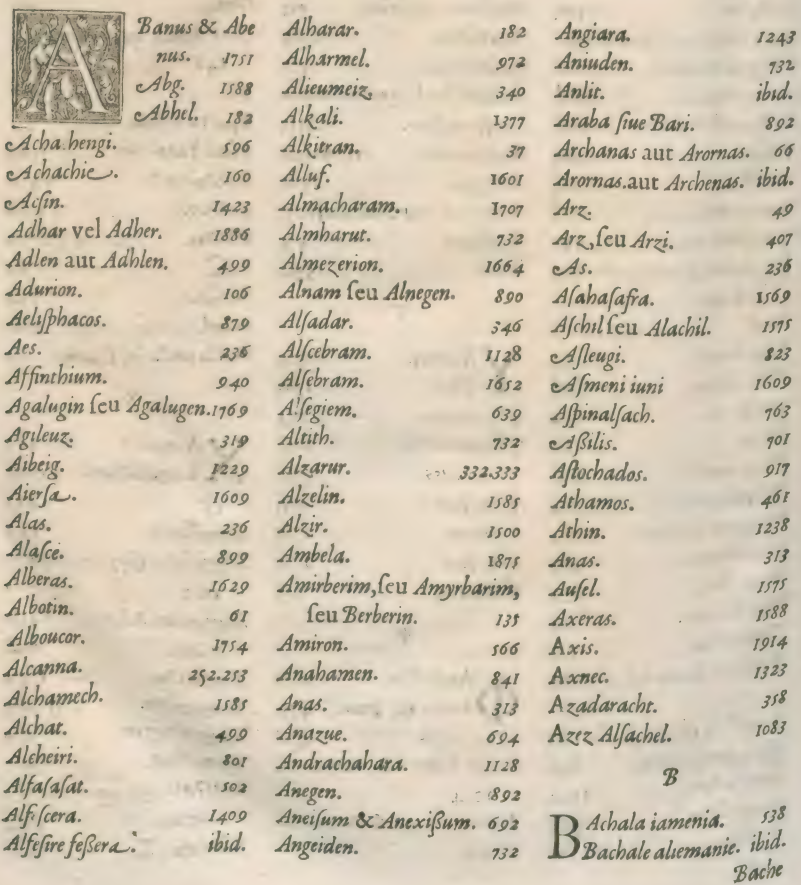 ABanus & Abe
nus. 1751
Abg. 1588
Abhel. 182
Acha hengi. 596
Achachie. 160
Acſin. 1423
Adhar vel Adher. 1886
Adlen aut Adhlen. 499
Adurion. 106
Aeliſphacos. 879
Aes. 236
Affinthium. 940
Agalugin ſeu Agalugen. 1769
Agileuz. 319
Aibeig. 1229
Aierſa. 1609
Alas. 236
Alaſce. 899
Alberas. 1629
Albotin. 61
Alboucor. 1754
Alcanna. 252.253
Alchamech. 1585
Alchat. 499
Alcheiri. 801
Alfaſaſat. 502
Alfiſcera. 1409
Alfeſire feſſera. ibid.
Alharar. 182
Alharmel. 972
Alieumeiz, 340
Alkali. 1377
Alkitran. 37
Alluf. 1601
Almacharam. 1707
Almharut. 732
Almezerion. 1664
Alnam ſeu Alnegen. 890
Alſadar. 346
Alſcebram. 1128
Alſebram. 1652
Alſegiem. 639
Altith. 732
Alzarur. 332.333
Alzelin. 1585
Alzir. 1500
Ambela. 1875
Amirberim, ſeu Amyrbarim,
ſeu Berberin. 135
Amiron. 566
Anahamen. 841
Anas. 313
Anazue. 694
Andrachahara. 1128
Anegen. 892
Aneiſum & Anexiſſum. 692
Angeiden. 732
Angiara. 1243
Aniuden. 732
Anlit. ibid.
Araba ſiue Bari. 892
Archanas aut Arornas. 66
Arornas.aut Archenas. ibid.
Arz. 49
Arz, ſeu Arzi. 407
As. 236
Aſahaſafra. 1569
Aſchil ſeu Alachil. 1575
Aſleugi. 823
Aſmeni iuni 1609
Aſpinalſach. 763
Aſſilis. 701
Aſtochados. 917
Athamos. 461
Athin. 1238
Anas. 313
Auſel. 1575
Axeras. 1588
Axis. 1914
Axnec. 1323
Azadaracht. 358
Azez Alſachel. 1083
B
BAchala iamenia. 538
Bachale aliemanie. ibid.
Bache